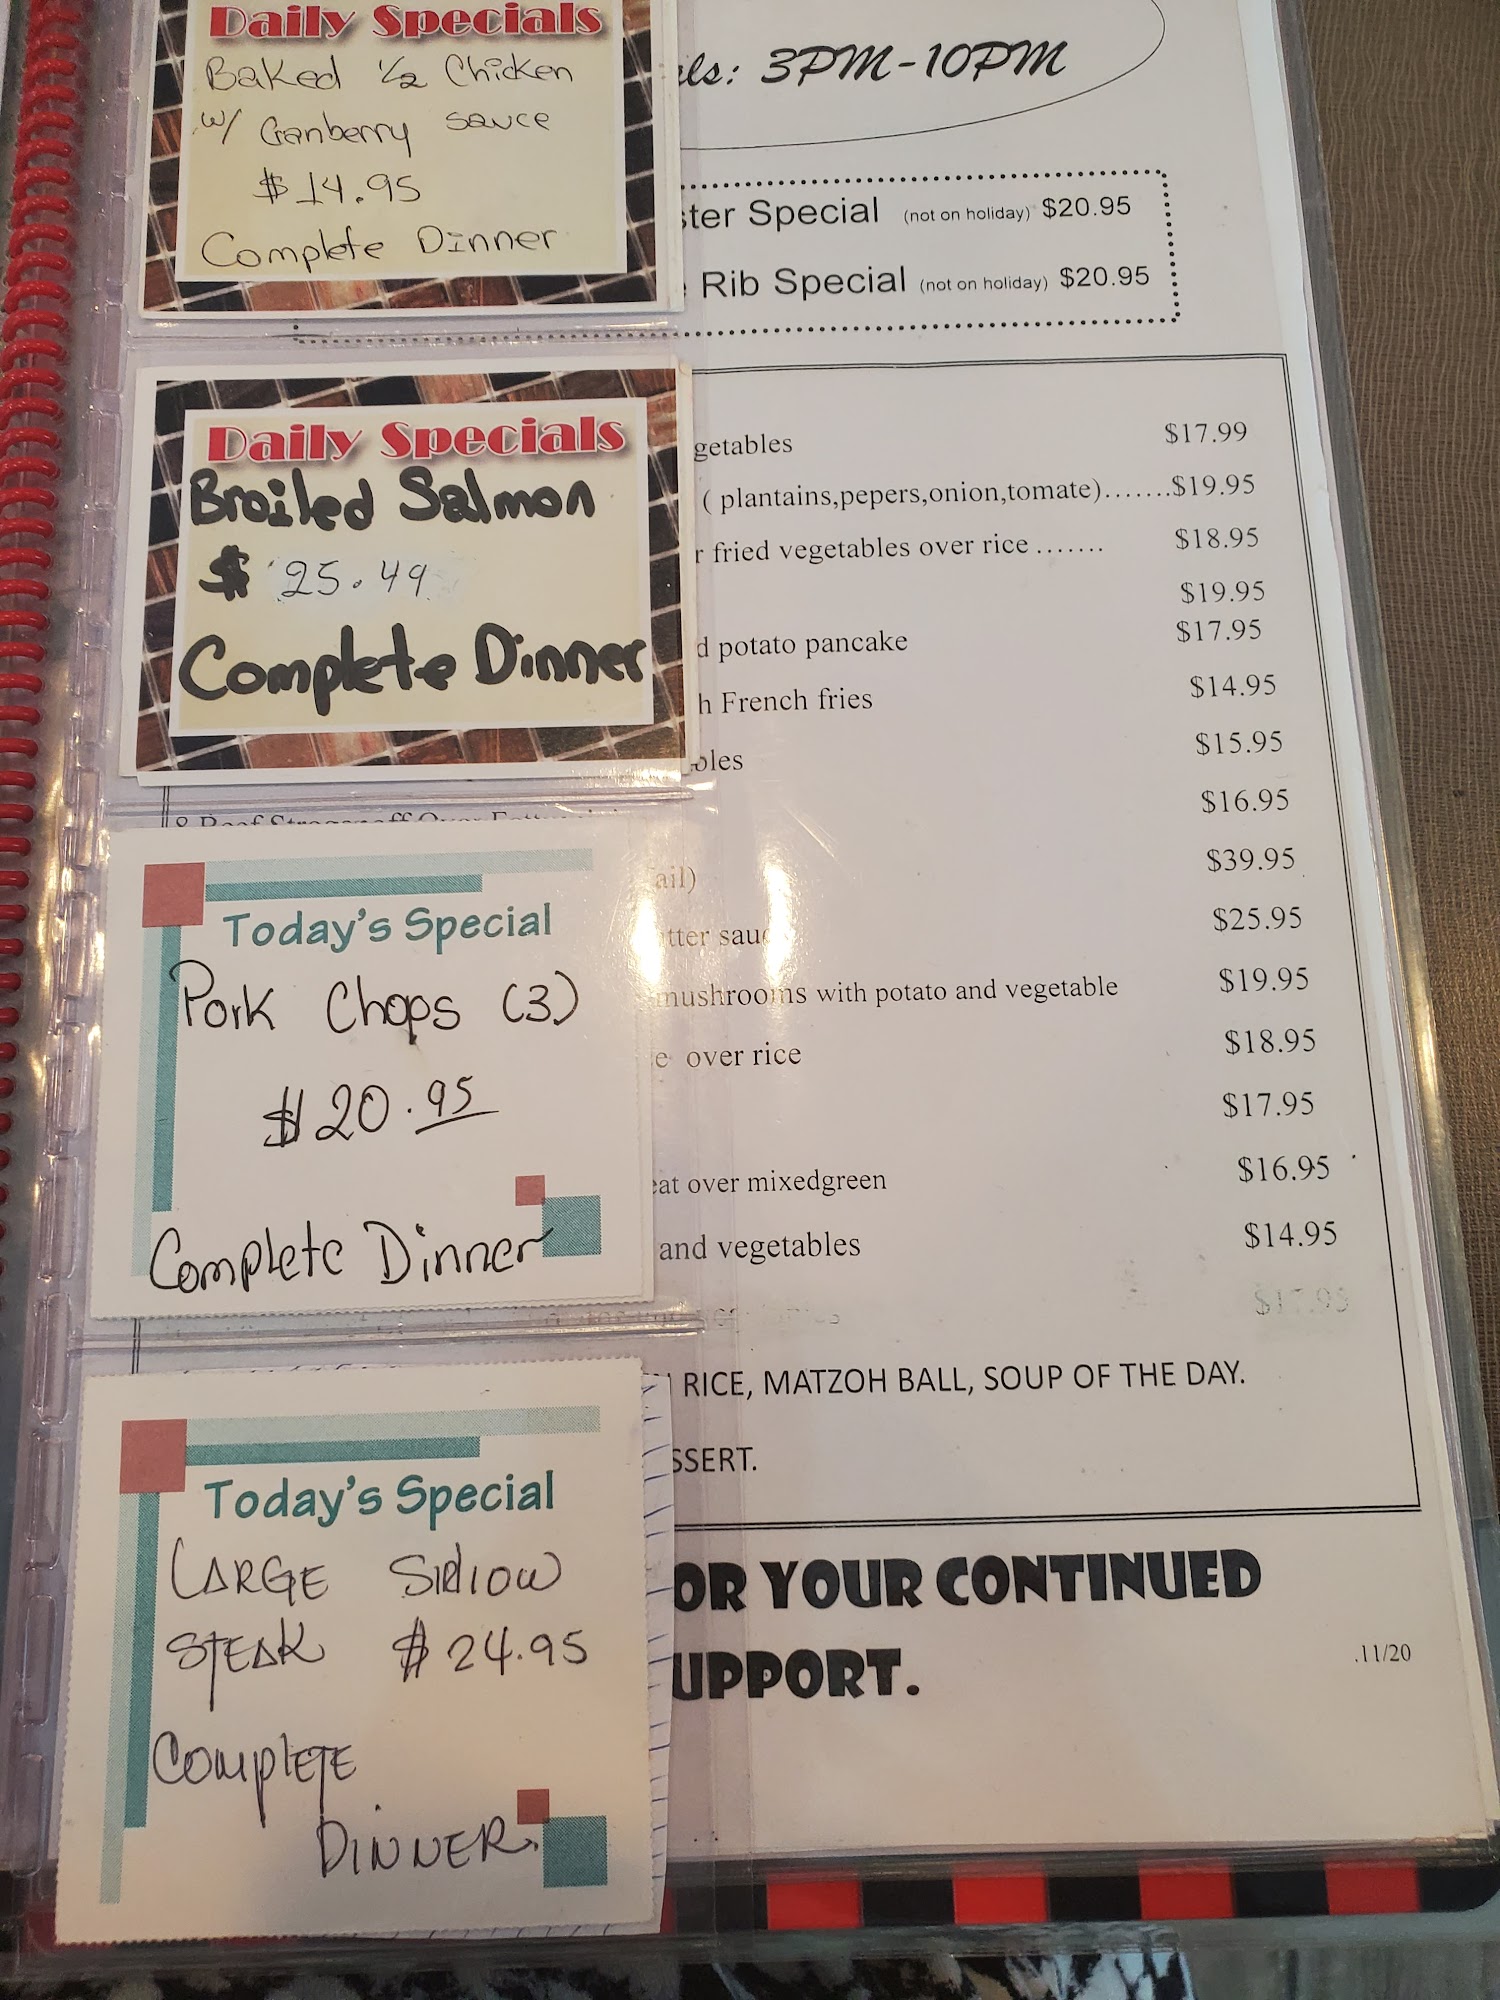 Daily Specials
Baked 1/2 Chicken
w/ Cranberry sauce
$14.95
Complete Dinner
Daily Specials
Broiled Salmon
$ 25.49
Complete Dinner
Today's Special
Pork Chops (3)
$20.95
Complete Dinner
Today's Special
LARGE Sirlion
STEAK $24.95
Complete
DINNER.
3PM-10PM
Special (not on holiday) $20.95
Rib Special (not on holiday) $20.95
$17.99
( plantains,pepers,onion,tomate).......$19.95
fried vegetables over rice ....... $18.95
$19.95
potato pancake $17.95
French fries $14.95
$15.95
$16.95
$39.95
$25.95
mushrooms with potato and vegetable $19.95
over rice $18.95
$17.95
over mixedgreen $16.95
and vegetables $14.95
$17.95
RICE, MATZOH BALL, SOUP OF THE DAY.
YOUR CONTINUED
.11/20